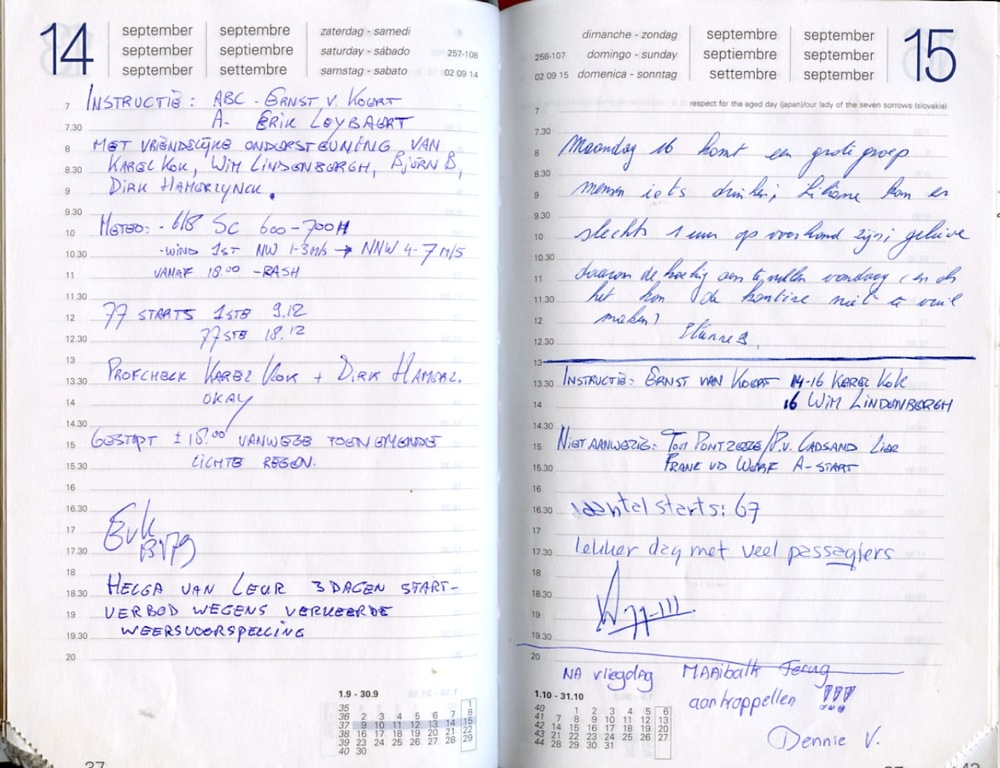 14
september
september
september
septembre
septiembre
settembre
zaterdag - samedi
saturday - sábado
samstag - sabato
257-108
02 09 14
7 INSTRUCTIE: ABC - ERNST V. KOERT
7.30 A- ERIK LEYBAERT
8 MET VRIENDELIJKE ONDERSTEUNING VAN
8.30 KAREL KOK, WIM LINDENBERGH, BJÖRN B,
9 DIRK HAMERLYNCK.
9.30
10 METEO: - 6/8 SC 600-700M
10.30 -WIND 1ST NW 1-3M/S → NNW 4-7 M/S
11 VANAF 18.00 -RASH
11.30
12 77 STARTS 1STE 9.12
12.30 77STE 18.12
13
13.30 PROFCHECK KAREL KOK + DIRK HAMERL.
14 OKAY
14.30
15 GESTOPT ± 18.00 VANWEGE TOENEMENDE
15.30 LICHTE REGEN.
16
16.30
17
17.30
18
18.30 HELGA VAN LEUR 3 DAGEN START-
19 VERBOD WEGENS VERKEERDE
19.30 WEERSVOORSPELLING
20
1.9 - 30.9
35 1
36 2 3 4 5 6 7 8
37 9 10 11 12 13 14 15
38 16 17 18 19 20 21 22
39 23 24 25 26 27 28 29
40 30
37
15
dimanche - zondag
domingo - sunday
domenica - sonntag
258-107
02 09 15
septembre
septiembre
settembre
september
september
september
respect for the aged day (japan)/our lady of the seven sorrows (slovakia)
7
7.30
8 Maandag 16 komt een grote groep
8.30
9 mensen iets drinken; Liliane kan er
9.30
10 slechts 1 uur op voorhand zijn; gelieve
10.30
11 daarom de koeling aan te vullen vandaag (en als
11.30 het kan de kantine niet te vuil
12 maken)
12.30
13
13.30 INSTRUCTIE: ERNST VAN KOERT 14-16 KAREL KOK
14 16 WIM LINDENBERGH
14.30
15 NIET AANWEZIG: TOM PONTZEELE/P.V. CADSAND LIER
15.30 FRANK VD WERF A-START
16
16.30 aantal starts: 67
17
17.30 lekker dag met veel passagiers
18
18.30
19
19.30
20 NA vliegdag MAAibalk Terug
aankoppelen !!!
Dennie V.
1.10 - 31.10
40 1 2 3 4 5 6
41 7 8 9 10 11 12 13
42 14 15 16 17 18 19 20
43 21 22 23 24 25 26 27
44 28 29 30 31